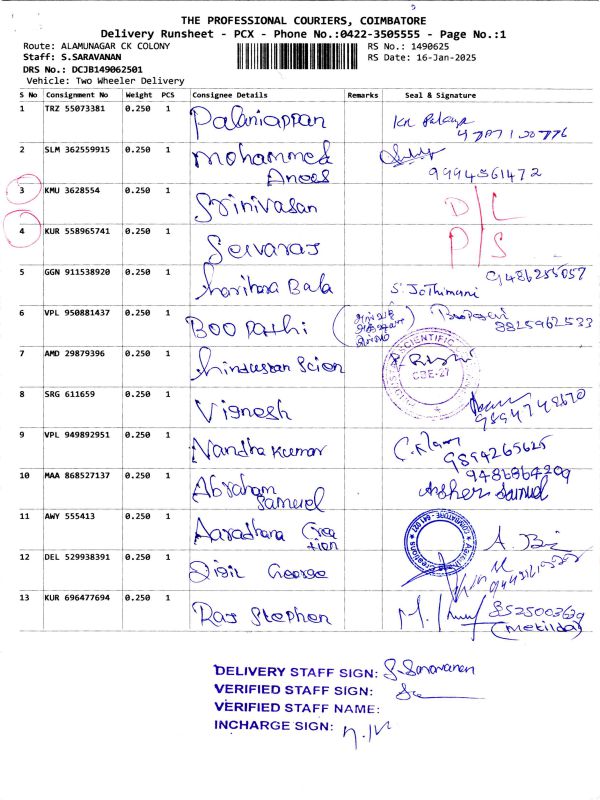 THE PROFESSIONAL COURIERS, COIMBATORE
Delivery Runsheet - PCX - Phone No.:0422-3505555 - Page No.:1
Route: ALAMUNAGAR CK COLONY
RS No.: 1490625
Staff: S.SARAVANAN
RS Date: 16-Jan-2025
DRS No.: DCJB149062501
Vehicle: Two Wheeler Delivery
S No Consignment No Weight PCS Consignee Details Remarks Seal & Signature
1 TRZ 55073381 0.250 1 Palaniappan
2 SLM 362559915 0.250 1 Mohammed
Anees 9994361472
3 KMU 3628554 0.250 1 Srinivasan D/L
4 KUR 558965741 0.250 1 Selvaraj P/S
5 GGN 911538920 0.250 1 Harihara Bala S. Jothimani 9486255057
6 VPL 950881437 0.250 1 Boopathi Boopathi
8825962533
7 AMD 29879396 0.250 1 Hindustan Scien SCIENTIFIC CBE-27
8 SRG 611659 0.250 1 Vignesh 9894748670
9 VPL 949892951 0.250 1 Nandha Kumar 9894265625
10 MAA 868527137 0.250 1 Abraham
Samuel Asher Samuel
11 AWY 555413 0.250 1 Aaradhana Crea
tion
12 DEL 529938391 0.250 1 George
13 KUR 696477694 0.250 1 Raj Stephen
(Metilda)
DELIVERY STAFF SIGN: S. Saravanan
VERIFIED STAFF SIGN:
VERIFIED STAFF NAME:
INCHARGE SIGN: